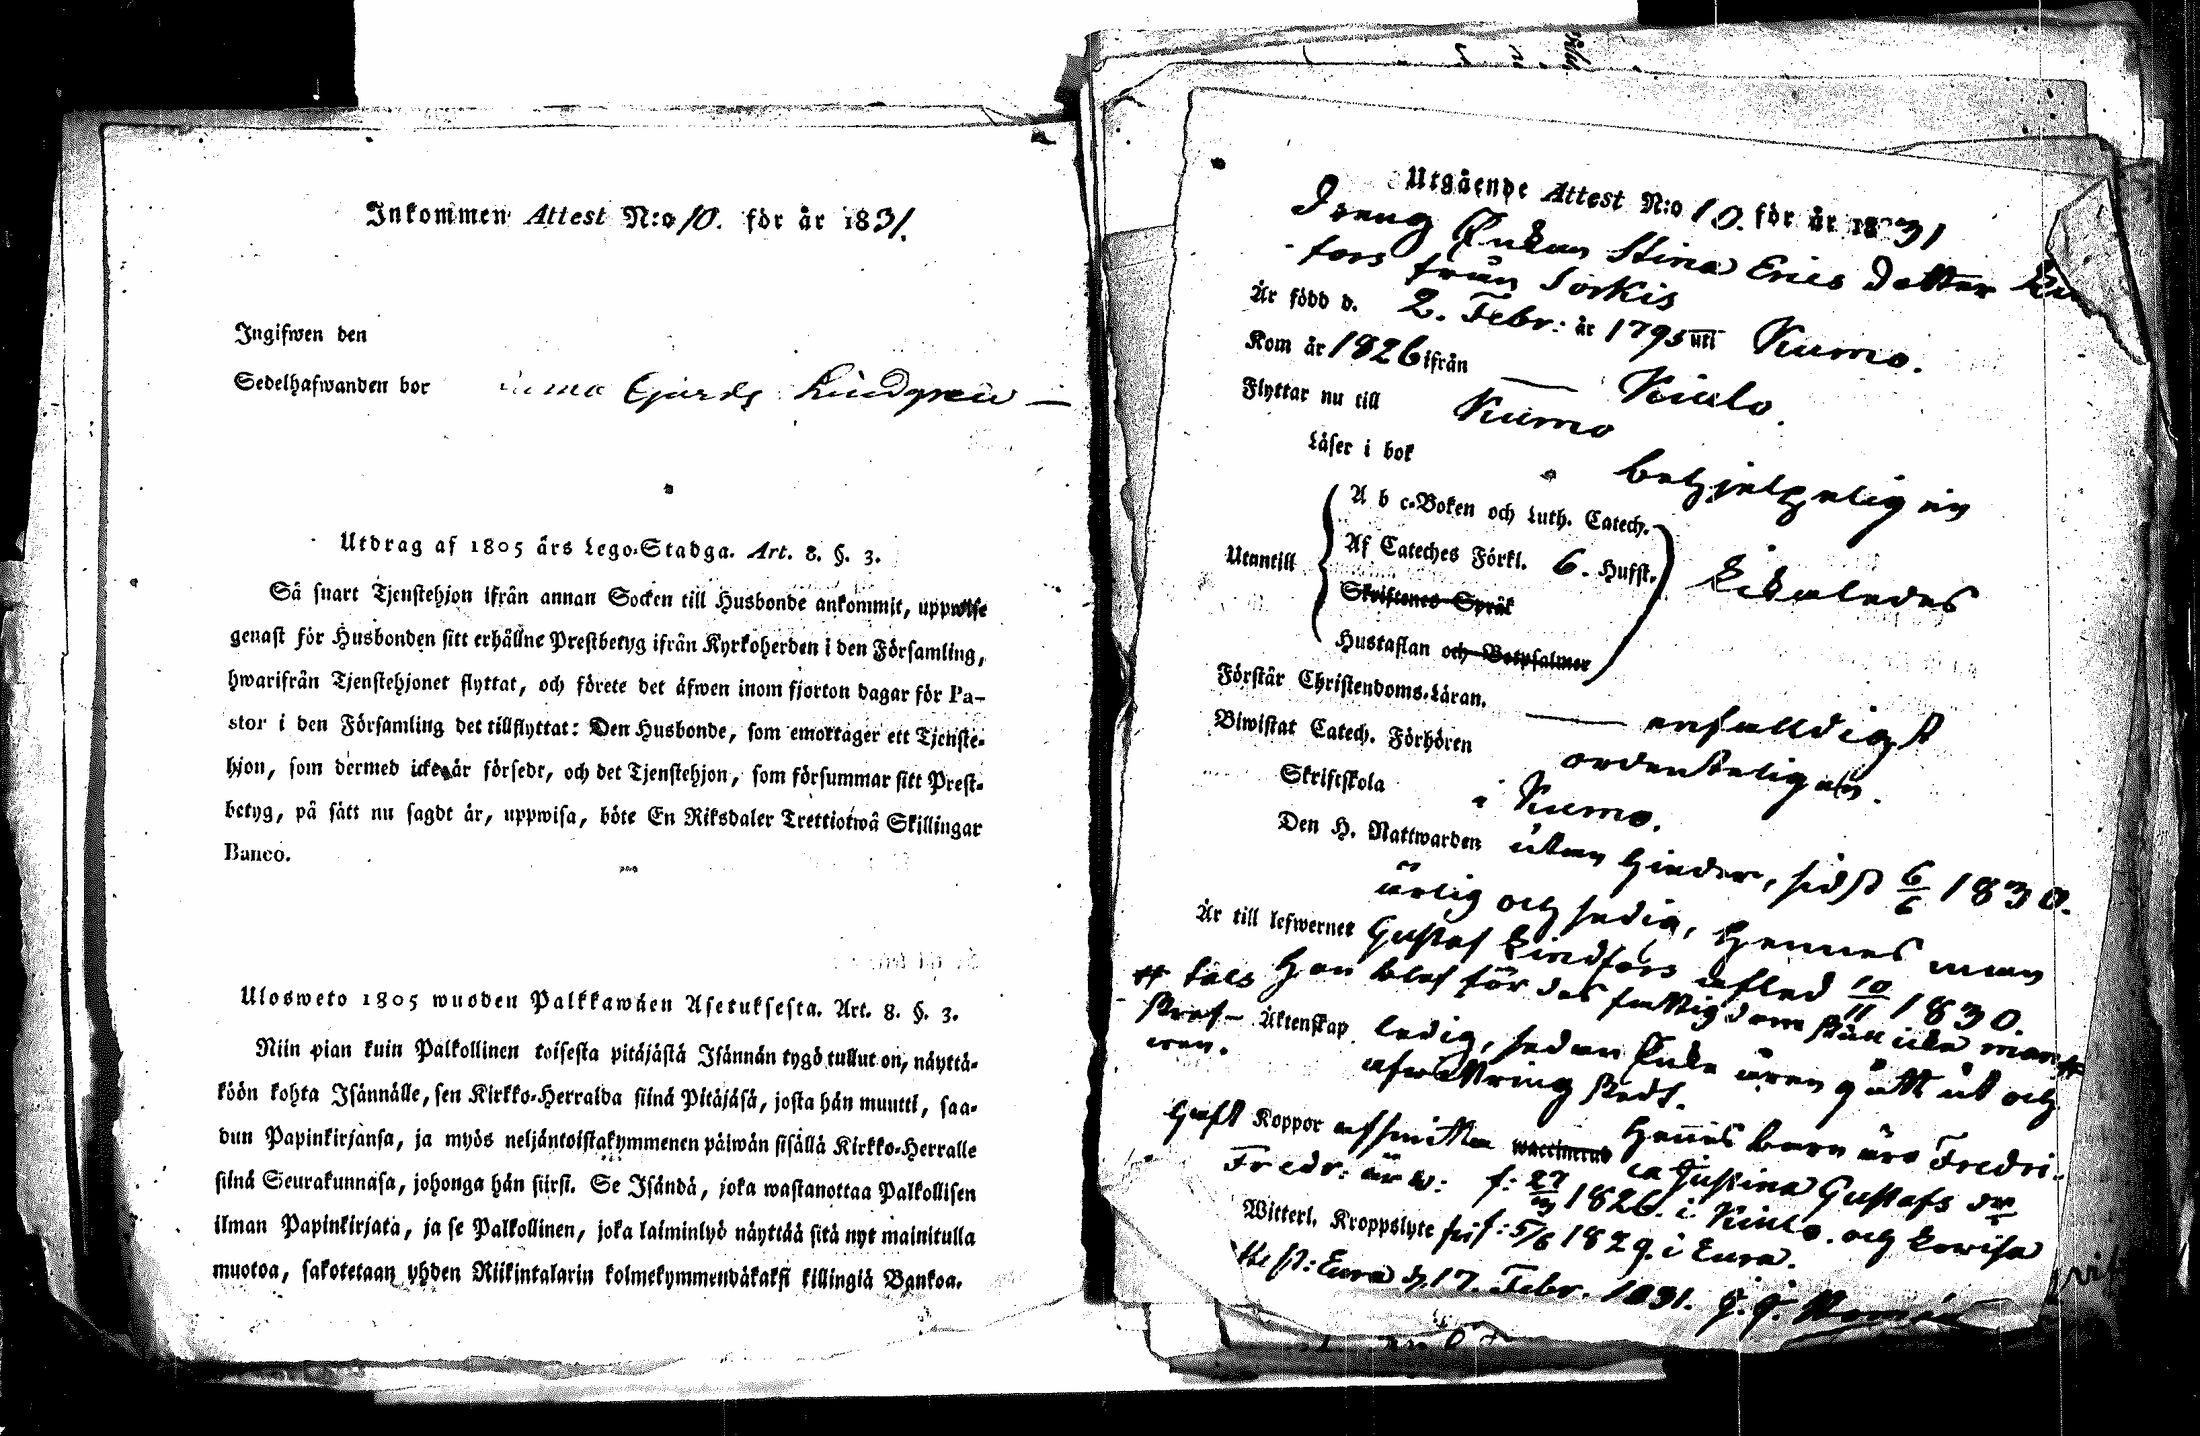 Inkommen Attest N:o 10. för år 1831.
Ingifwen den
Sedelhafwanden bor Lindgren
Utdrag af 1805 års Lego-Stadga. Art. 8. §. 3.
Så snart Tjenstehjon ifrån annan Socken till Husbonde ankommit, uppwise
genast för Husbonden sitt erhållne Prestbetyg ifrån Kyrkoherden i den Församling,
hwarifrån Tjenstehjonet flyttat, och förete det äfwen inom fjorton dagar för Pa-
stor i den Församling det tillflyttat: Den Husbonde, som emottager ett Tjenste-
hjon, som dermed icke är försedt, och det Tjenstehjon, som försummar sitt Prest-
betyg, på sätt nu sagdt är, uppwisa, böte En Riksdaler Trettiotwå Skillingar
Banco.
Ulosweto 1805 wuoden Palkkawäen Asetuksesta. Art. 8. §. 3.
Niin pian kuin Palkollinen toisesta pitäjästä Isännän tygö tullut on, näyttä-
köön kohta Isännälle, sen Kirkko-Herralda siinä Pitäjäsä, josta hän muutti, saa-
dun Papinkirjansa, ja myös neljäntoistakymmenen päiwän sisällä Kirkko-Herralle
siinä Seurakunnasa, johonga hän siirsi. Se Isändä, joka wastanottaa Palkollisen
ilman Papinkirjata, ja se Palkollinen, joka laiminlyö näyttää sitä nyt mainitulla
muotoa, sakotetaan yhden Riikintalarin kolmekymmendäkaksi killingiä Bankoa.
Utgående Attest N:o 10. för år 1831
Dreng Enkan Stina Erics Dotter
fors från Sorkis
Är född d. 2. Febr: år 1795 uti Kumo.
Kom år 1826 ifrån — Kiulo.
Flyttar nu till Kumo
Läser i bok behjelpeligen
A b c-Boken och Luth. Catech.
Utantill Af Cateches Förkl. 6. Hufst. likaledes
Skriftenes Språk
Hustaflan och Botpsalmer
Förstår Christendoms-Läran. — enfalldigt
Biwistat Catech. Förhören ordenteligen.
Skriftskola i Kumo.
Den H. Nattwarden utan hinder, sidst 6/6 1830.
ärlig och sedig, Hennes man
Är till lefwernet Gustaf Lindfors afled 10/11 1830.
# tals Hon blef för des fattigdom skull icke man #
Äktenskap ledig, sedan Enke åren gått ut och
afwittring skedt.
Haft Koppor waccinerad Hennes barn äro Fredri-
ca Justina Gustafs dr
Fredr: är w: f: 27/3 1826. i Kiulo. och Lovisa
Witterl. Kroppslyte f: 5/6 1829. i Eura.
Eura d. 17. Febr. 1831.